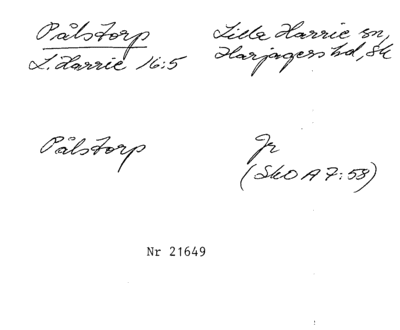 Pålstorp
L. Harrie 16:5
Lilla Harrie sn,
Harjagers hd, Sk
Pålstorp
Jr
(SkO A 7:58)
Nr 21649